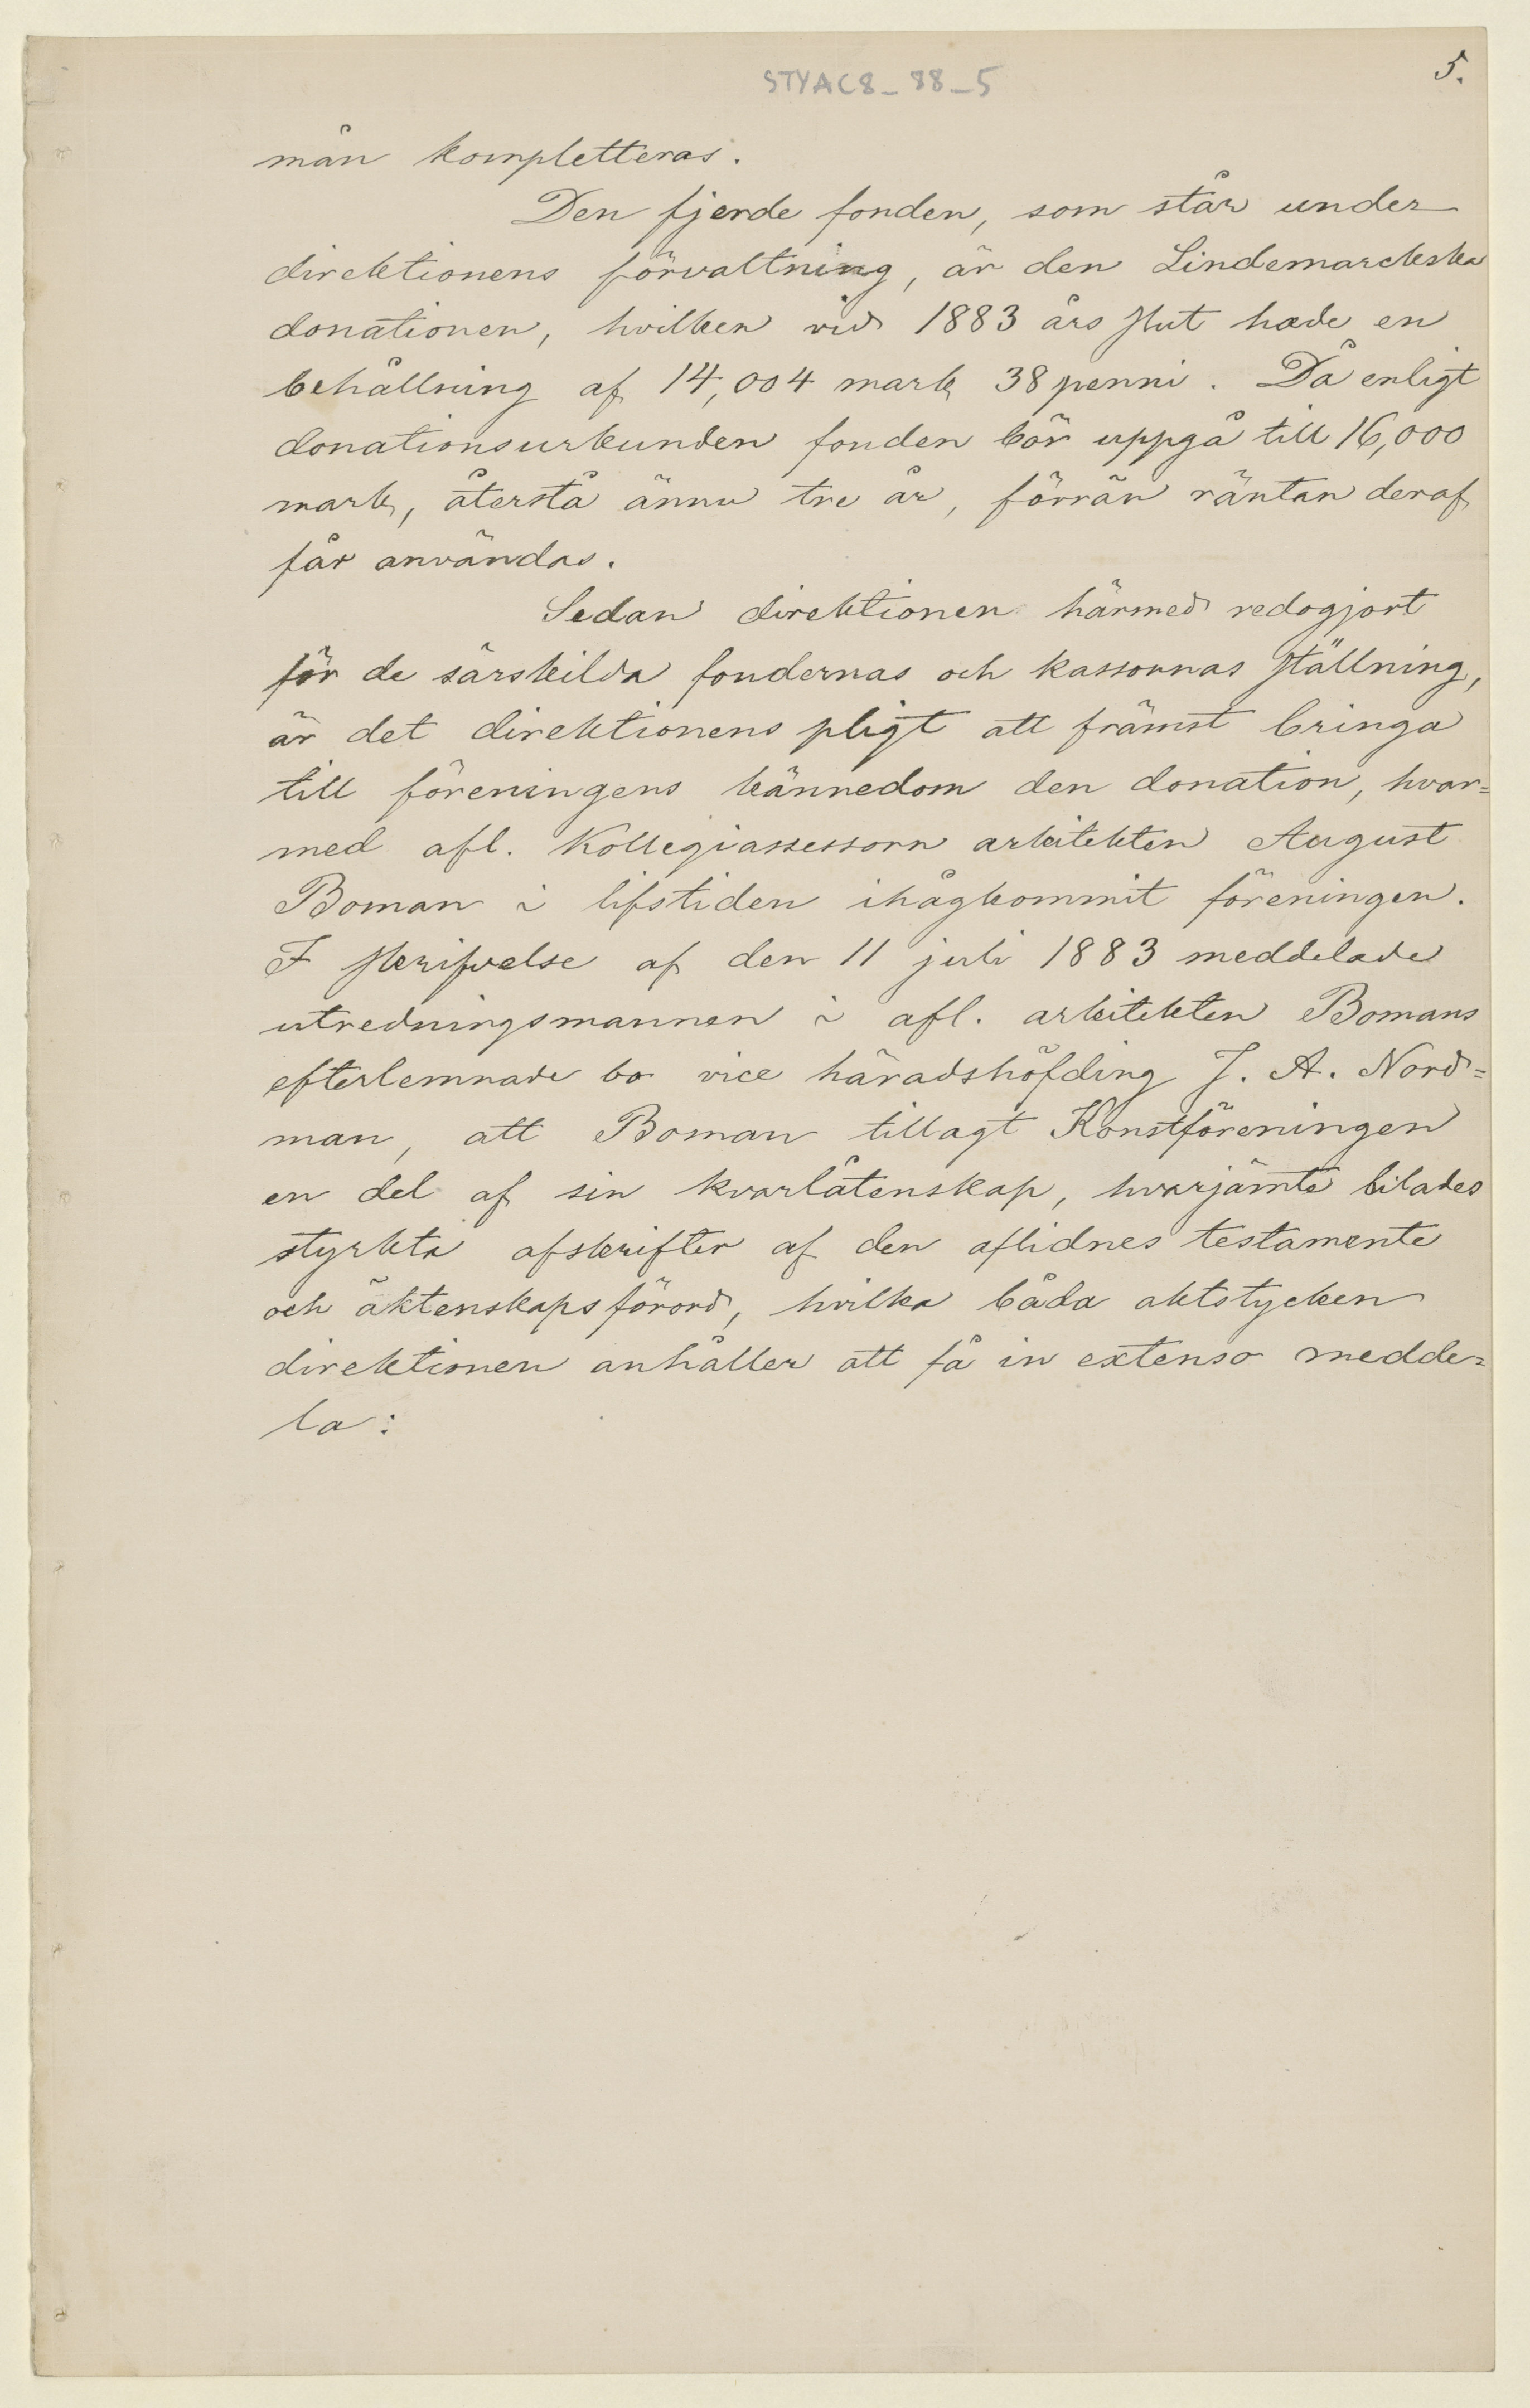 STYAC8_88_5
5.
mån kompletteras.
Den fjerde fonden, som står under
direktionens förvaltning, är den Lindemarckska
donationen, hvilken vid 1883 års slut hade en
behållning af 14,004 mark 38 penni. Då enligt
donationsurkunden fonden bör uppgå till 16,000
mark, återstå ännu tre år, förrän räntan deraf
får användas.
Sedan direktionen härmed redogjort
för de särskilda fondernas och kassornas ställning,
är det direktionens pligt att främst bringa
till föreningens kännedom den donation, hvar=
med afl. Kollegiassessorn arkitekten August
Boman i lifstiden ihågkommit föreningen.
I skrifvelse af den 11 juli 1883 meddelade
utredningsmannen i afl. arkitekten Bomans
efterlemnade bo vice häradshöfding J. A. Nord=
man, att Boman tillagt Konstföreningen
en del af sin kvarlåtenskap, hvarjämte bilades
styrkta afskrifter af den aflidnes testamente
och äktenskapsförord, hvilka båda aktstycken
direktionen anhåller att få in extenso medde=
la: